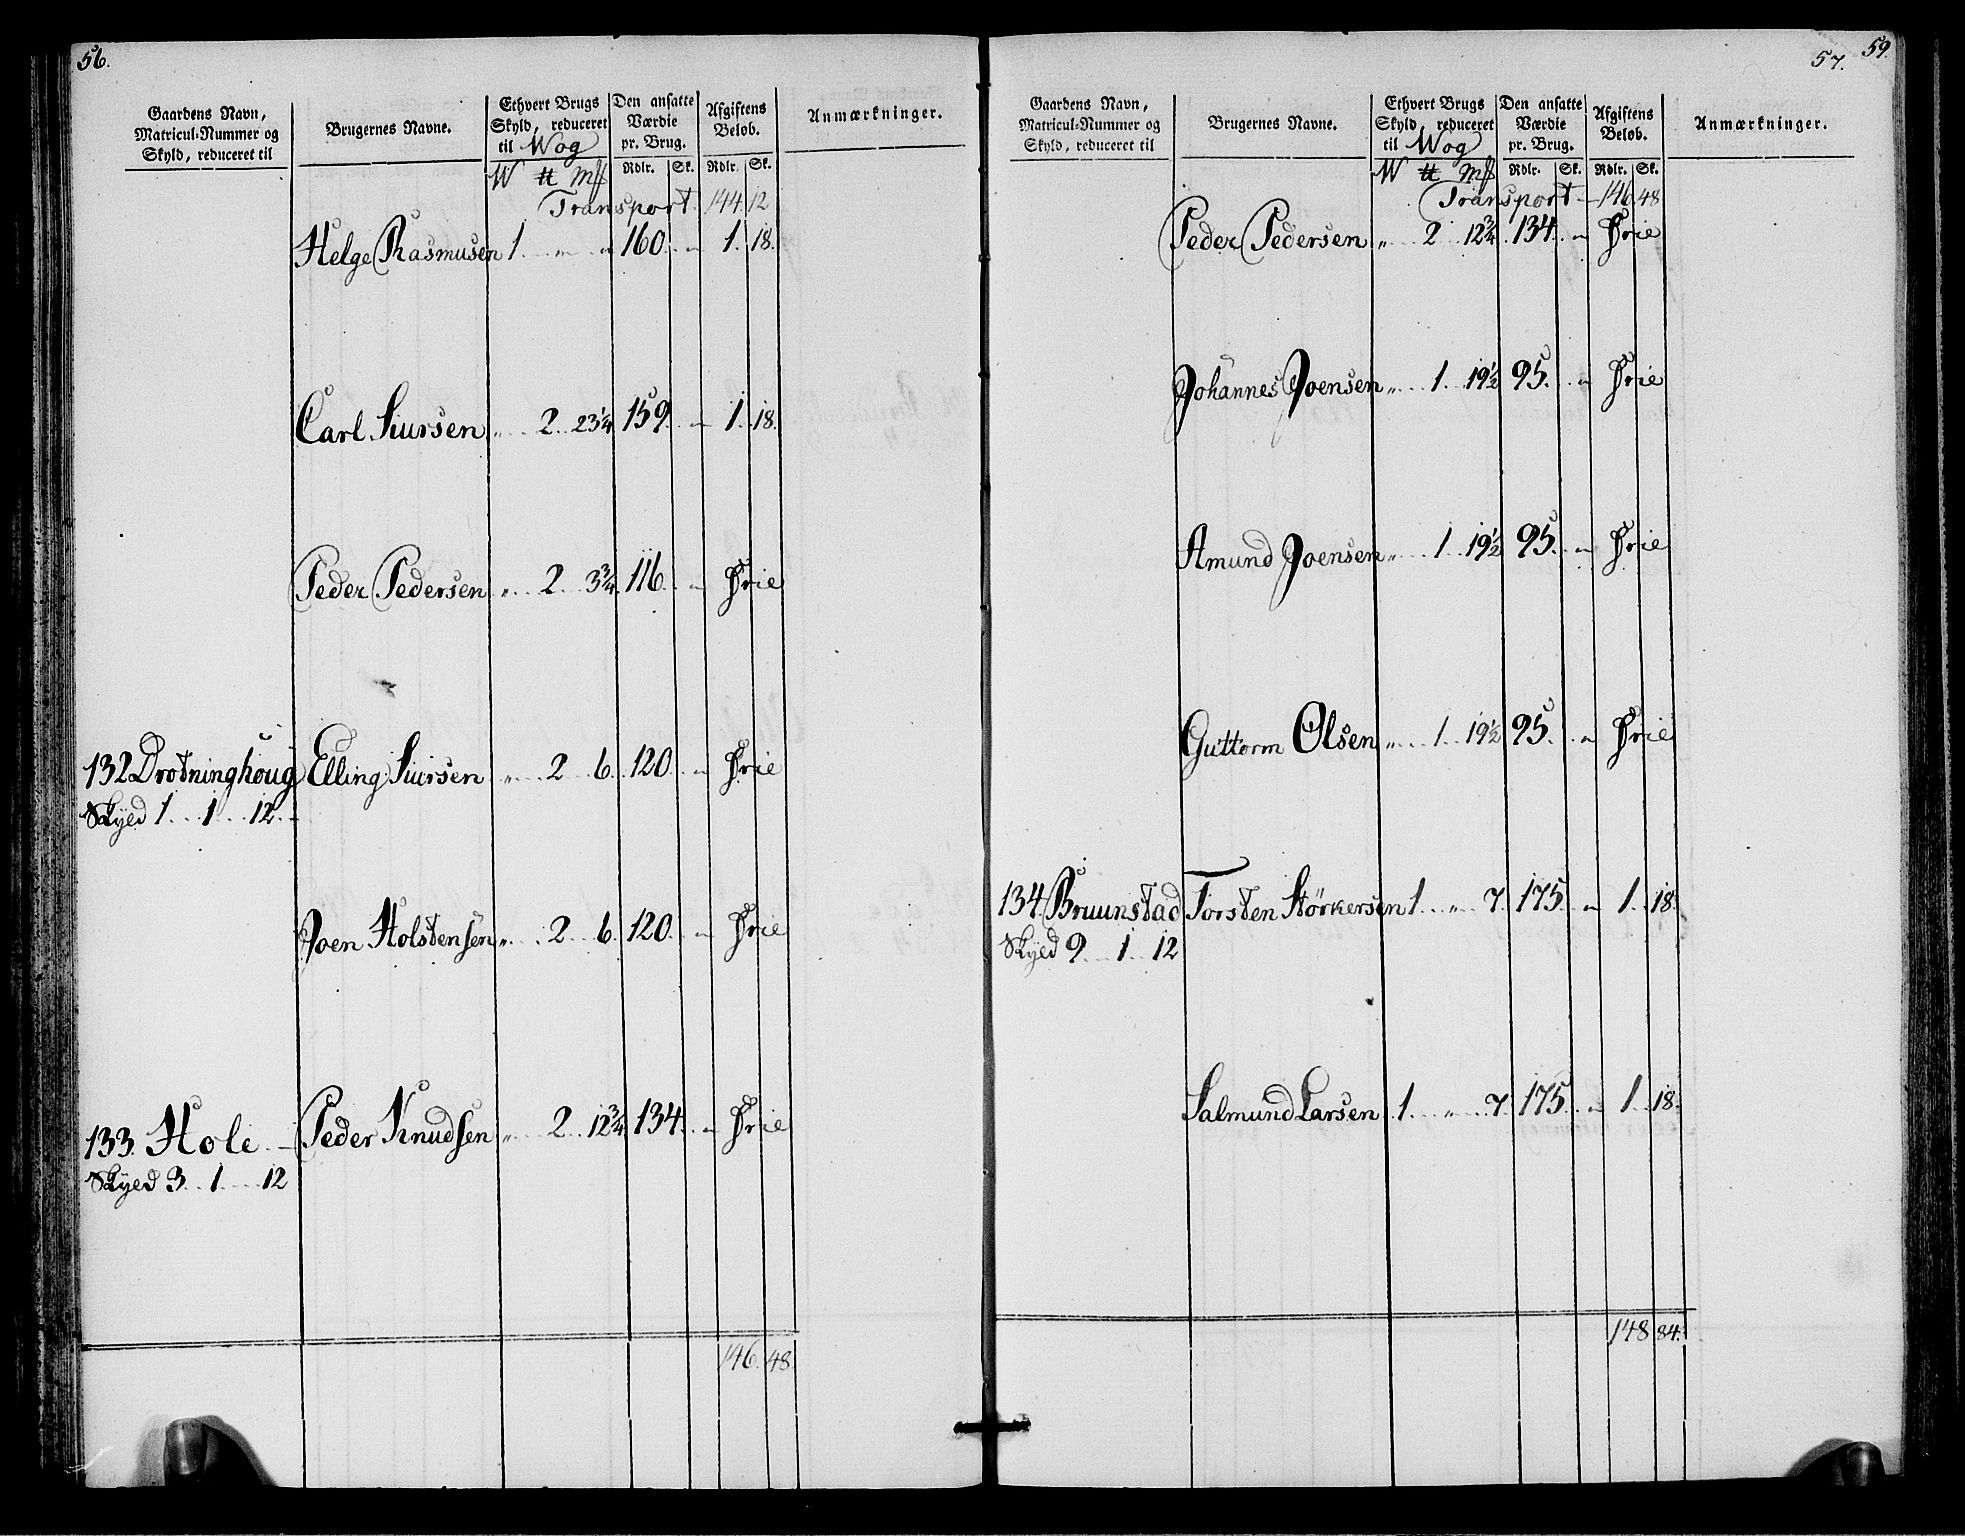 56.
Gaardens Navn, Matricul-Nummer og Skyld, reduceret til
Brugernes Navne.
Ethvert Brugs Skyld, reduceret til Wog
W ℔ Mk
Den ansatte Værdie pr. Brug.
Rdlr. Sk.
Afgiftens Beløb.
Rdlr. Sk.
Anmærkninger.
Transport 144 12
Helge Rasmusen 1 " " 160 " 1 18.
Carl Siursen " 2 23¼ 159 " 1 18.
Peder Pedersen " 2 3¾ 116 " Frie
132 Drotninghoug Elling Siursen " 2 6. 120 " Frie
Skyld 1 1 12
Joen Holstensen " 2 6. 120 " Frie
133. Hole Peder Knudsen " 2 12¾ 134 " Frie
Skyld 3 1 12
146. 48.
57. 59.
Gaardens Navn, Matricul-Nummer og Skyld, reduceret til
Brugernes Navne.
Ethvert Brugs Skyld, reduceret til Wog
W ℔ Mk
Den ansatte Værdie pr. Brug.
Rdlr. Sk.
Afgiftens Beløb.
Rdlr. Sk.
Anmærkninger.
Transport 146 48
Peder Pedersen " 2 12¾ 134 " Frie
Johannes Joensen " 1 19½ 95. " Frie
Amund Joensen " 1 19½ 95. " Frie
Guttorm Olsen " 1 19½ 95. " Frie
134. Bruunstad Torsten Störkersen 1 " 7. 175 " 1 18.
Skyld 9 1 12
Salmund Larsen 1 " 7. 175 " 1 18.
148 84.